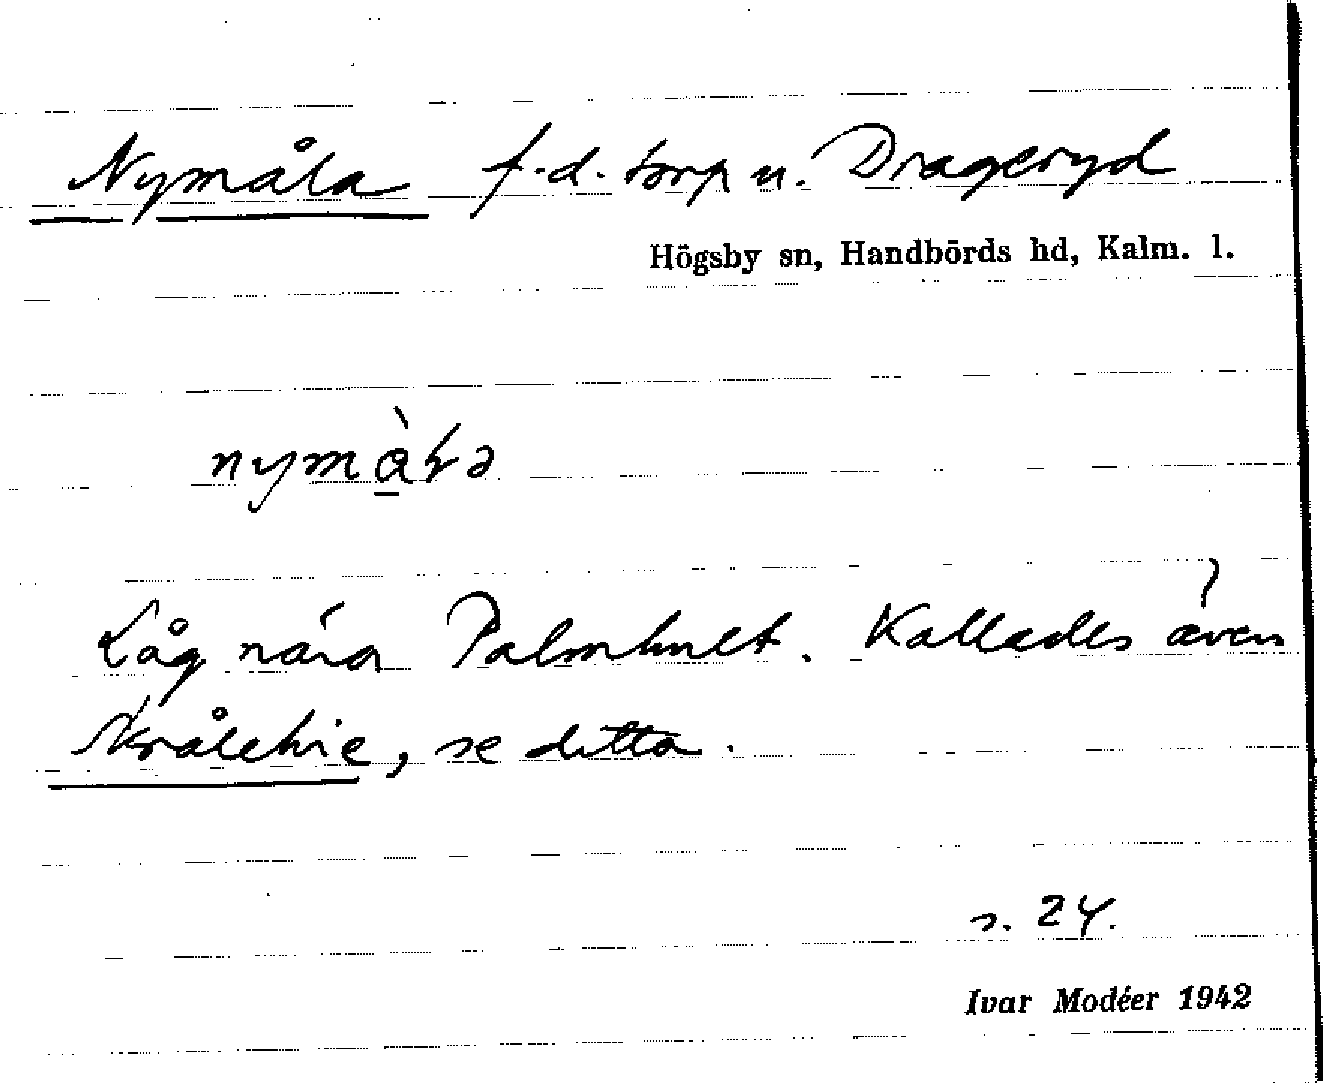 Nymåla f.d. torp u. Drageryd
Högsby sn, Handbörds hd, Kalm. l.
nymàɫə
Låg nära Palmhult. Kallades även
se detta.
s. 24.
Ivar Modéer 1942